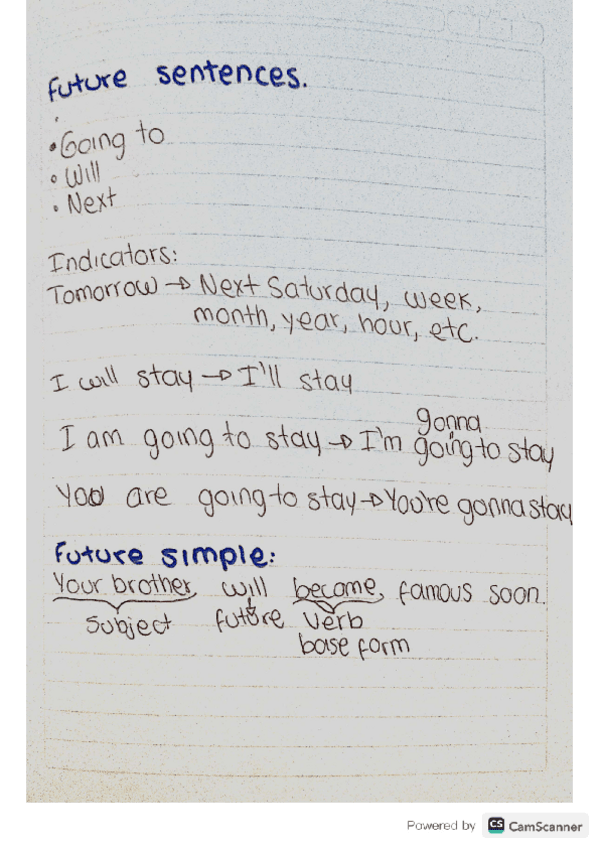 Future sentences.
• Going to
• Will
• Next
Indicators:
Tomorrow → Next Saturday, week,
month, year, hour, etc.
I will stay → I'll stay
gonna
I am going to stay → I'm going to stay
You are going to stay → You're gonna stay
Future simple:
Your brother will become famous soon.
Subject future verb
base form
Powered by CS CamScanner